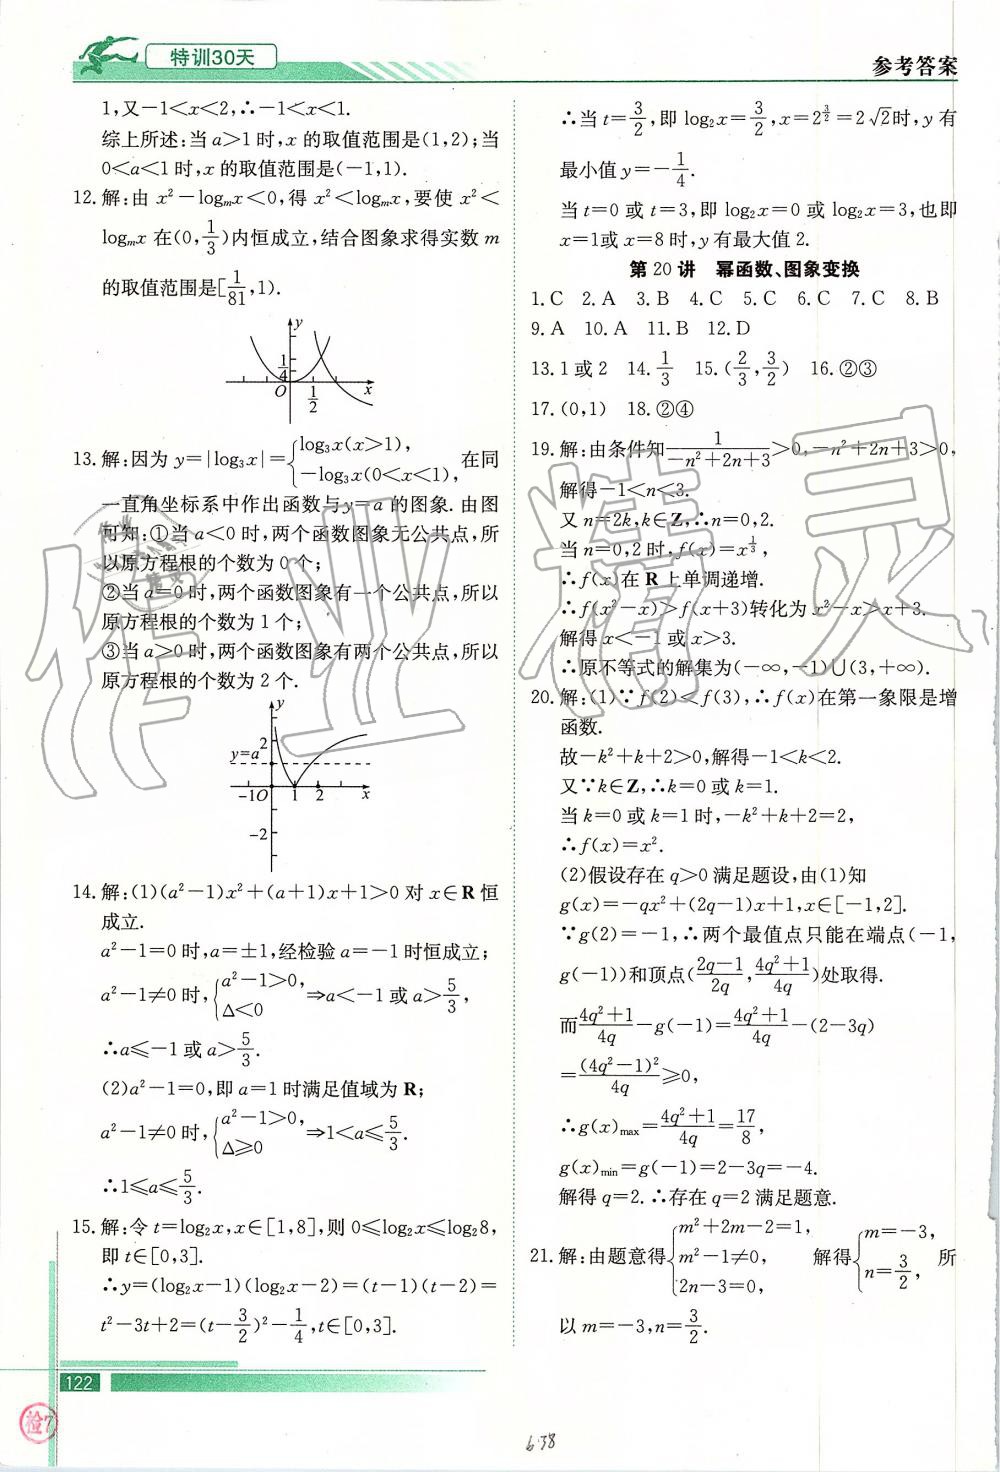 特训30天
参考答案
1,又-1<x<2,∴-1<x<1.
综上所述:当a>1时,x的取值范围是(1,2);当
0<a<1时,x的取值范围是(-1,1).
12.解:由 x²-logₘx<0,得 x²<logₘx,要使 x²<
logₘx在(0,1/3)内恒成立,结合图象求得实数m
的取值范围是[1/81,1).
y
1/4
O 1/2 x
13.解:因为y=|log₃x|={log₃x(x>1), -log₃x(0<x<1), 在同
一直角坐标系中作出函数与y=a的图象.由图
可知:①当a<0时,两个函数图象无公共点,所
以原方程根的个数为0个;
②当a=0时,两个函数图象有一个公共点,所以
原方程根的个数为1个;
③当a>0时,两个函数图象有两个公共点,所以
原方程根的个数为2个.
y
2
y=a
-1 O 1 2 x
-2
14.解:(1)(a²-1)x²+(a+1)x+1>0对x∈R恒
成立.
a²-1=0时,a=±1,经检验a=-1时恒成立;
a²-1≠0时,{a²-1>0, Δ<0 ⇒a<-1或a>5/3,
∴a≤-1或a>5/3.
(2)a²-1=0,即a=1时满足值域为R;
a²-1≠0时,{a²-1>0, Δ≥0 ⇒1<a≤5/3.
∴1≤a≤5/3.
15.解:令t=log₂x,x∈[1,8],则0≤log₂x≤log₂8,
即t∈[0,3].
∴y=(log₂x-1)(log₂x-2)=(t-1)(t-2)=
t²-3t+2=(t-3/2)²-1/4,t∈[0,3].
∴当t=3/2,即log₂x=3/2,x=2^(3/2)=2√2时,y有
最小值y=-1/4.
当t=0或t=3,即log₂x=0或log₂x=3,也即
x=1或x=8时,y有最大值2.
第20讲 幂函数、图象变换
1.C 2.A 3.B 4.C 5.C 6.C 7.C 8.B
9.A 10.A 11.B 12.D
13.1或2 14.1/3 15.(2/3,3/2) 16.②③
17.(0,1) 18.②④
19.解:由条件知1/(-n²+2n+3)>0,-n²+2n+3>0,
解得-1<n<3.
又n=2k,k∈Z,∴n=0,2.
当n=0,2时,f(x)=x^(1/3),
∴f(x)在R上单调递增.
∴f(x²-x)>f(x+3)转化为x²-x>x+3.
解得x<-1或x>3.
∴原不等式的解集为(-∞,-1)∪(3,+∞).
20.解:(1)∵f(2)<f(3),∴f(x)在第一象限是增
函数.
故-k²+k+2>0,解得-1<k<2.
又∵k∈Z,∴k=0或k=1.
当k=0或k=1时,-k²+k+2=2,
∴f(x)=x².
(2)假设存在q>0满足题设,由(1)知
g(x)=-qx²+(2q-1)x+1,x∈[-1,2].
∵g(2)=-1,∴两个最值点只能在端点(-1,
g(-1))和顶点((2q-1)/2q,(4q²+1)/4q)处取得.
而(4q²+1)/4q-g(-1)=(4q²+1)/4q-(2-3q)
=(4q²-1)²/4q≥0,
∴g(x)max=(4q²+1)/4q=17/8,
g(x)min=g(-1)=2-3q=-4.
解得q=2.∴存在q=2满足题意.
21.解:由题意得{m²+2m-2=1, m²-1≠0, 2n-3=0, 解得{m=-3, n=3/2, 所
以m=-3,n=3/2.
122
检7
6.38
作业精灵